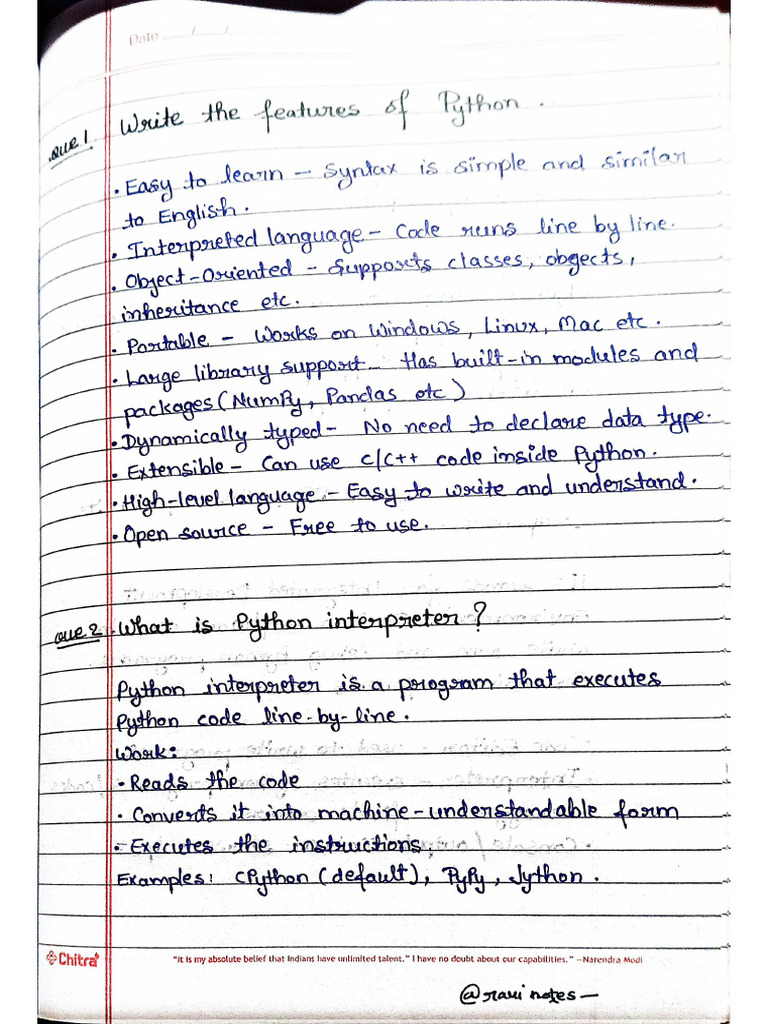 Date ___/___/___
Que 1 Write the features of Python.
• Easy to learn - Syntax is simple and similar
to English.
• Interpreted language - Code runs line by line.
• Object-Oriented - Supports classes, obgects,
inheritance etc.
• Portable - Works on Windows, Linux, Mac etc.
• Large library support - Has built-in modules and
packages (NumPy, Pandas etc)
• Dynamically typed - No need to declare data type.
• Extensible - Can use C/C++ code inside Python.
• High-level language - Easy to write and understand.
• Open source - Free to use.
Que 2 What is Python interpreter?
Python interpreter is a program that executes
Python code line-by-line.
Work:
• Reads the code
• Converts it into machine-understandable form
• Executes the instructions
Examples: CPython (default), PyPy, Jython.
Chitra
"It is my absolute belief that Indians have unlimited talent." I have no doubt about our capabilities." –Narendra Modi
@ravi notes—